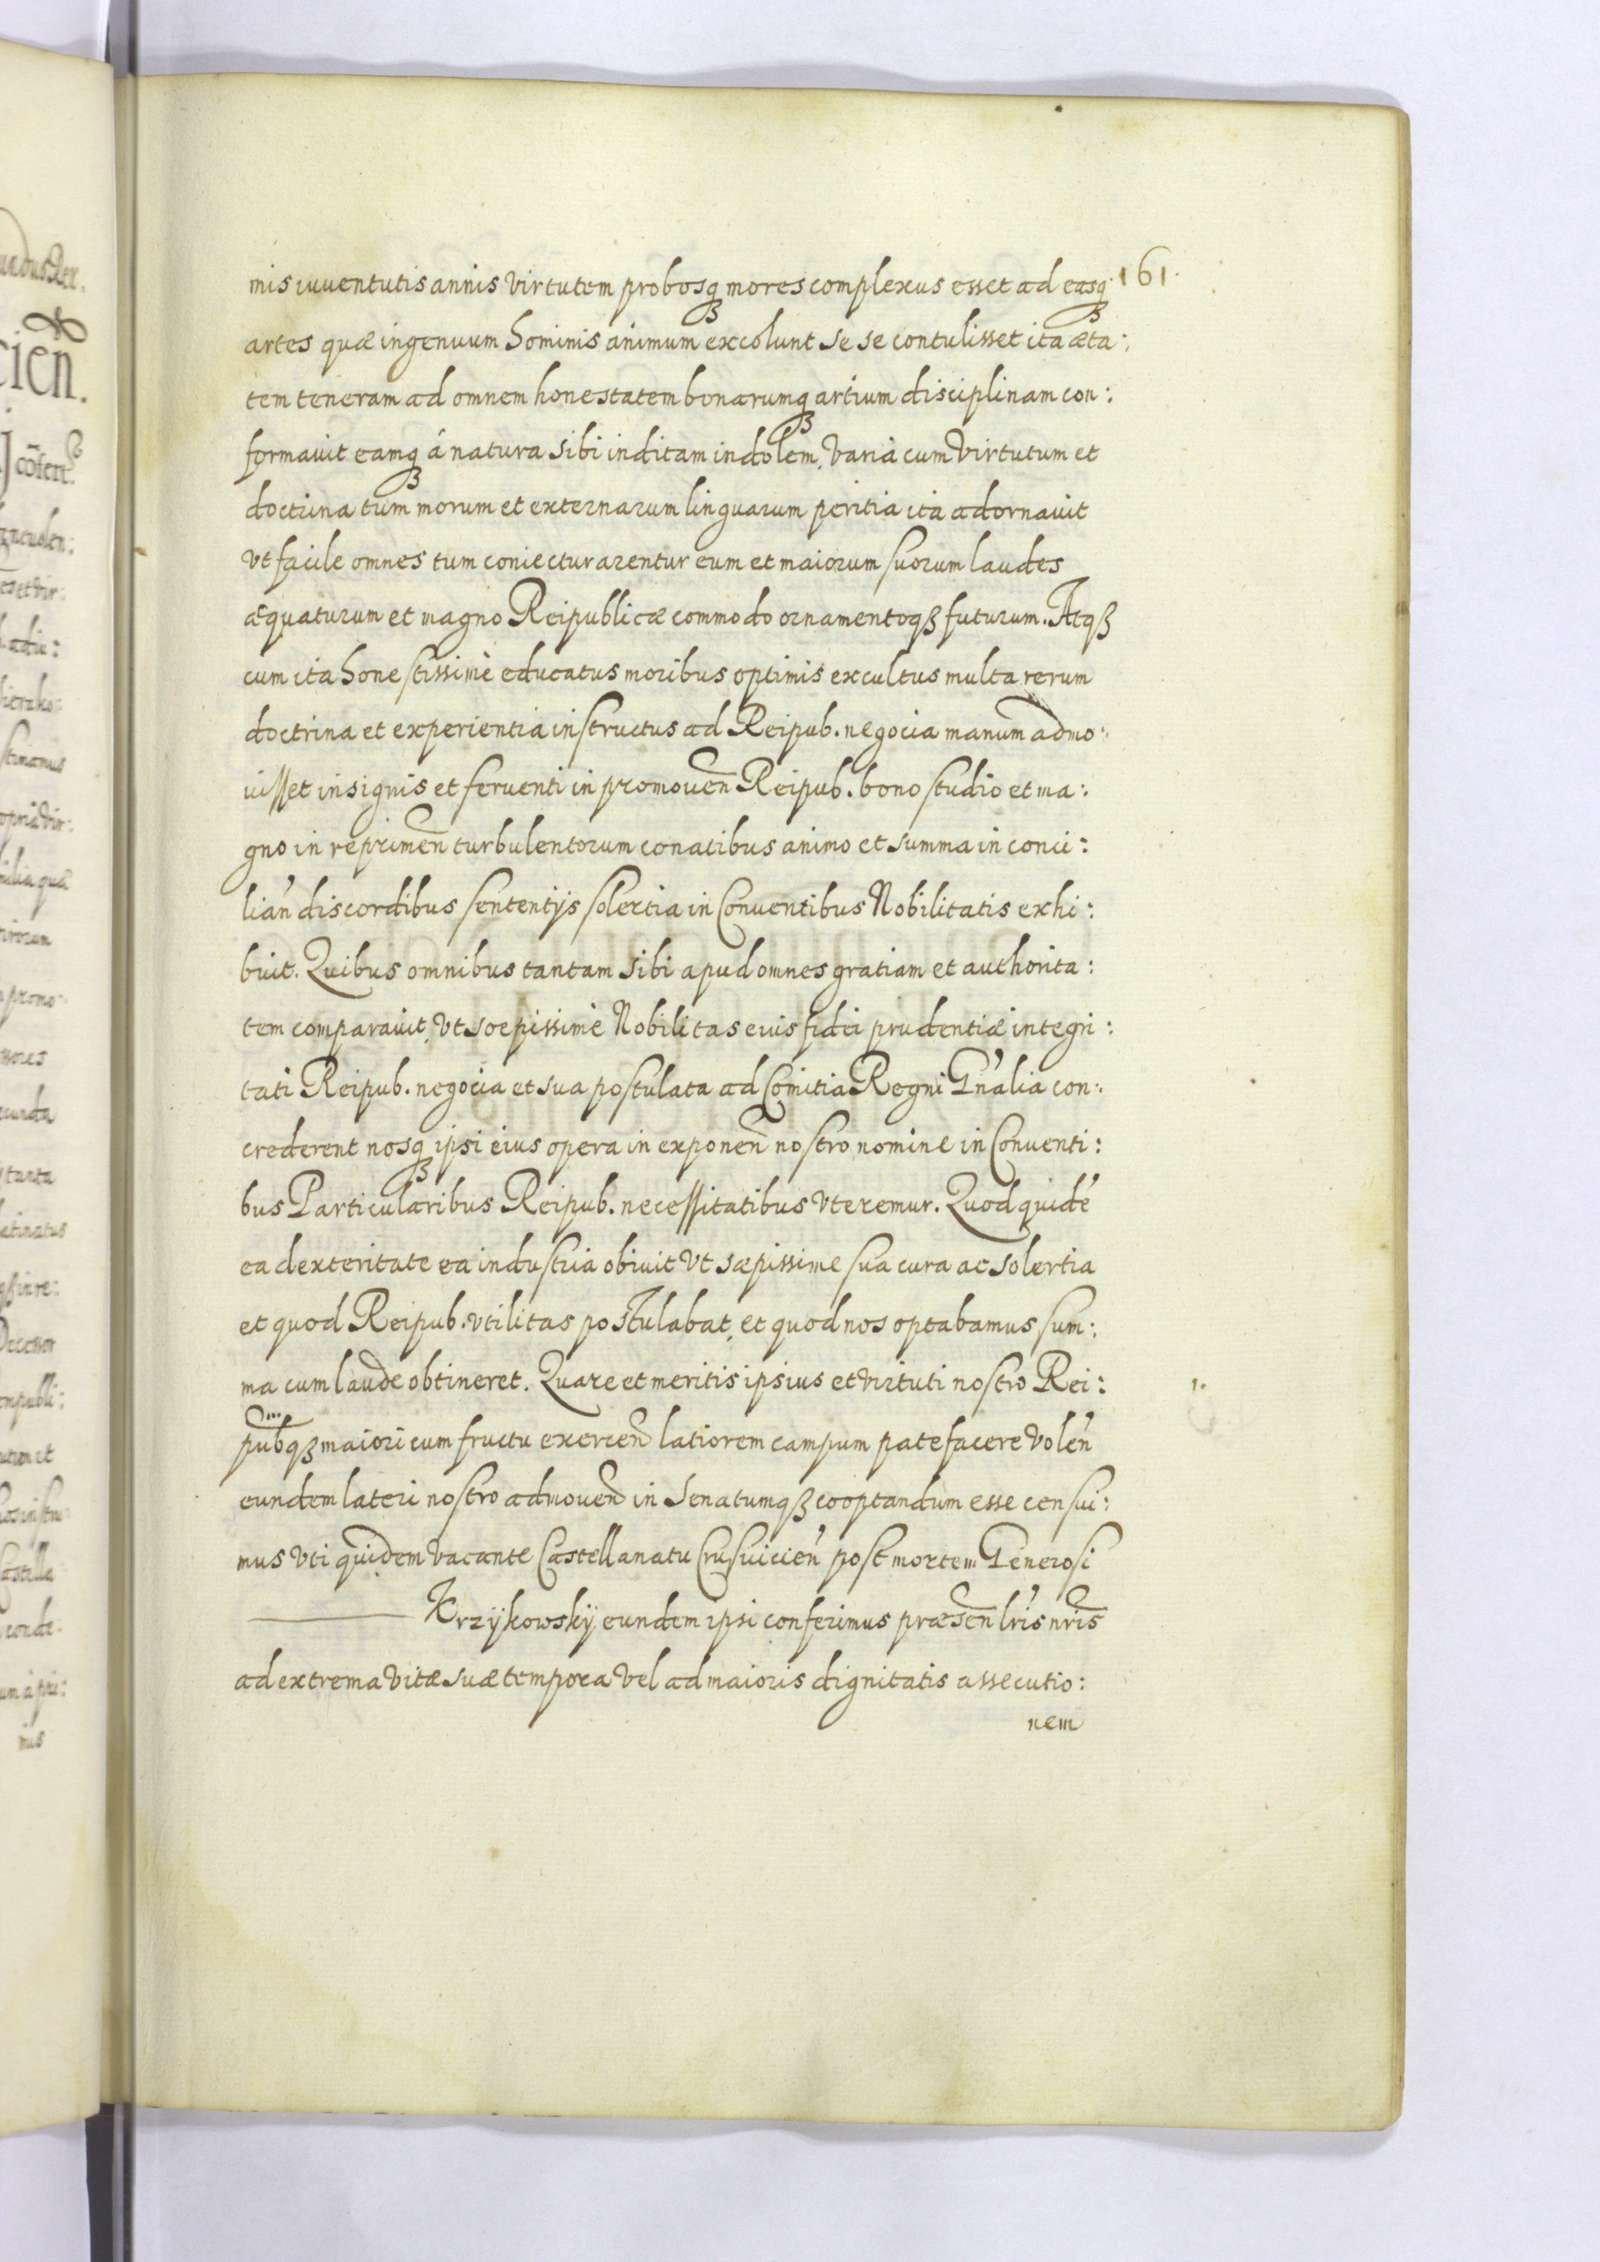 161.
mis iuventutis annis virtutem probosq mores complexus esset ad easq
artes quæ ingenuum hominis animum excolunt se se contulisset ita æta:
tem teneram ad omnem honestatem bonarumq artium disciplinam con:
formavit eamq á natura sibi inditam indolem, varia cum virtutum et
doctrina tum morum et externarum linguarum peritia ita adornavit
vt facile omnes tum coniecturarentur eum et maiorum suorum laudes
æquaturum et magno Reipublicæ commodo ornamentoqȝ futurum. Atqȝ
cum ita honestissimè educatus moribus optimis excultus multa rerum
doctrina et experientia instructus ad Reipub. negocia manum admo:
uisset insignis et feruenti in promouen̄ Reipub. bono studio et ma:
gno in reprimen̄ turbulentorum conatibus animo et summa in conci:
lian̄ discordibus sententijs solertia in Conuentibus Nobilitatis exhi:
buit. Quibus omnibus tantam sibi apud omnes gratiam et authorita:
tem comparavit, vt soepissimè Nobilitas euis fidei prudentiæ integri:
tati Reipub. negocia et sua postulata ad Comitia Regni Gn̄alia con:
crederent nosq ipsi eius opera in exponen̄ nostro nomine in Conuenti:
bus Particularibus Reipub. necessitatibus vteremur. Quod quidē
ea dexteritate ea industria obiuit vt sæpissime sua cura ac solertia
et quod Reipub. vtilitas postulabat, et quod nos optabamus sum:
ma cum laude obtineret. Quare et meritis ipsius et virtuti nostro Rei:
pub̄qȝ maiori cum fructu exercen̄ latiorem campum patefacere volen̄
eundem lateri nostro admouen̄ in Senatumqȝ cooptandum esse censui:
mus vti quidem vacante Castellanatu Crusuicien̄ post mortem Generosi
Krzÿkowskÿ eundem ipsi conferimus præsen̄ lr̄is nr̄is
ad extrema vitæ suæ tempora vel ad maioris dignitatis assecutio:
nem